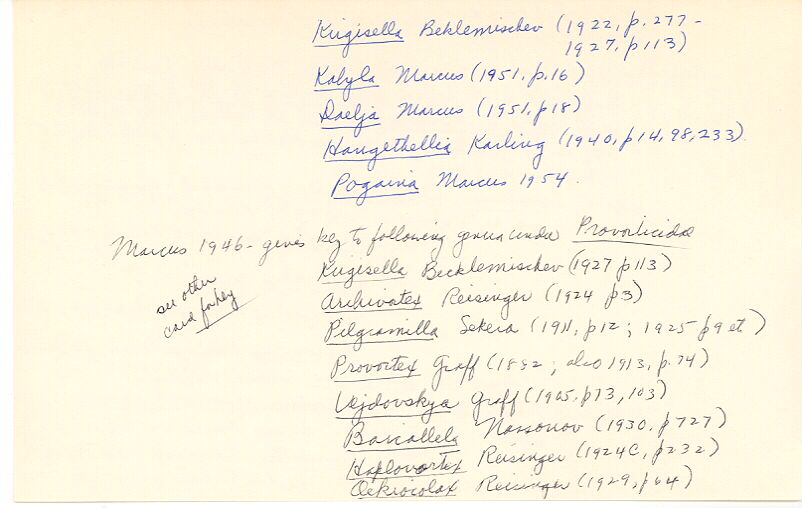 Kirgisella Beklemischev (1922, p. 277-
1927, p 113)
Kalyla Marcus (1951, p. 16)
Daelja Marcus (1951, p 18)
Hangethellia Karling (1940, p 14, 98, 233).
Pogaina Marcus 1954.
Marcus 1946 - gives key to following genera under Provorticidae
Kirgisella Becklemischev (1927 p 113)
see other
card for key
Archivotex Reisinger (1924 p 3)
Pilgramilla Sekera (1911, p 12; 1925 p 9 et )
Provortex Graff (1882; also 1913, p. 74)
Vejdovskya Graff (1905, p 73, 103)
Baicallela Nassonov (1930, p 727)
Haplovortex Reisinger (1924C, p 232)
Oekiocolax Reisinger (1929, p 64)